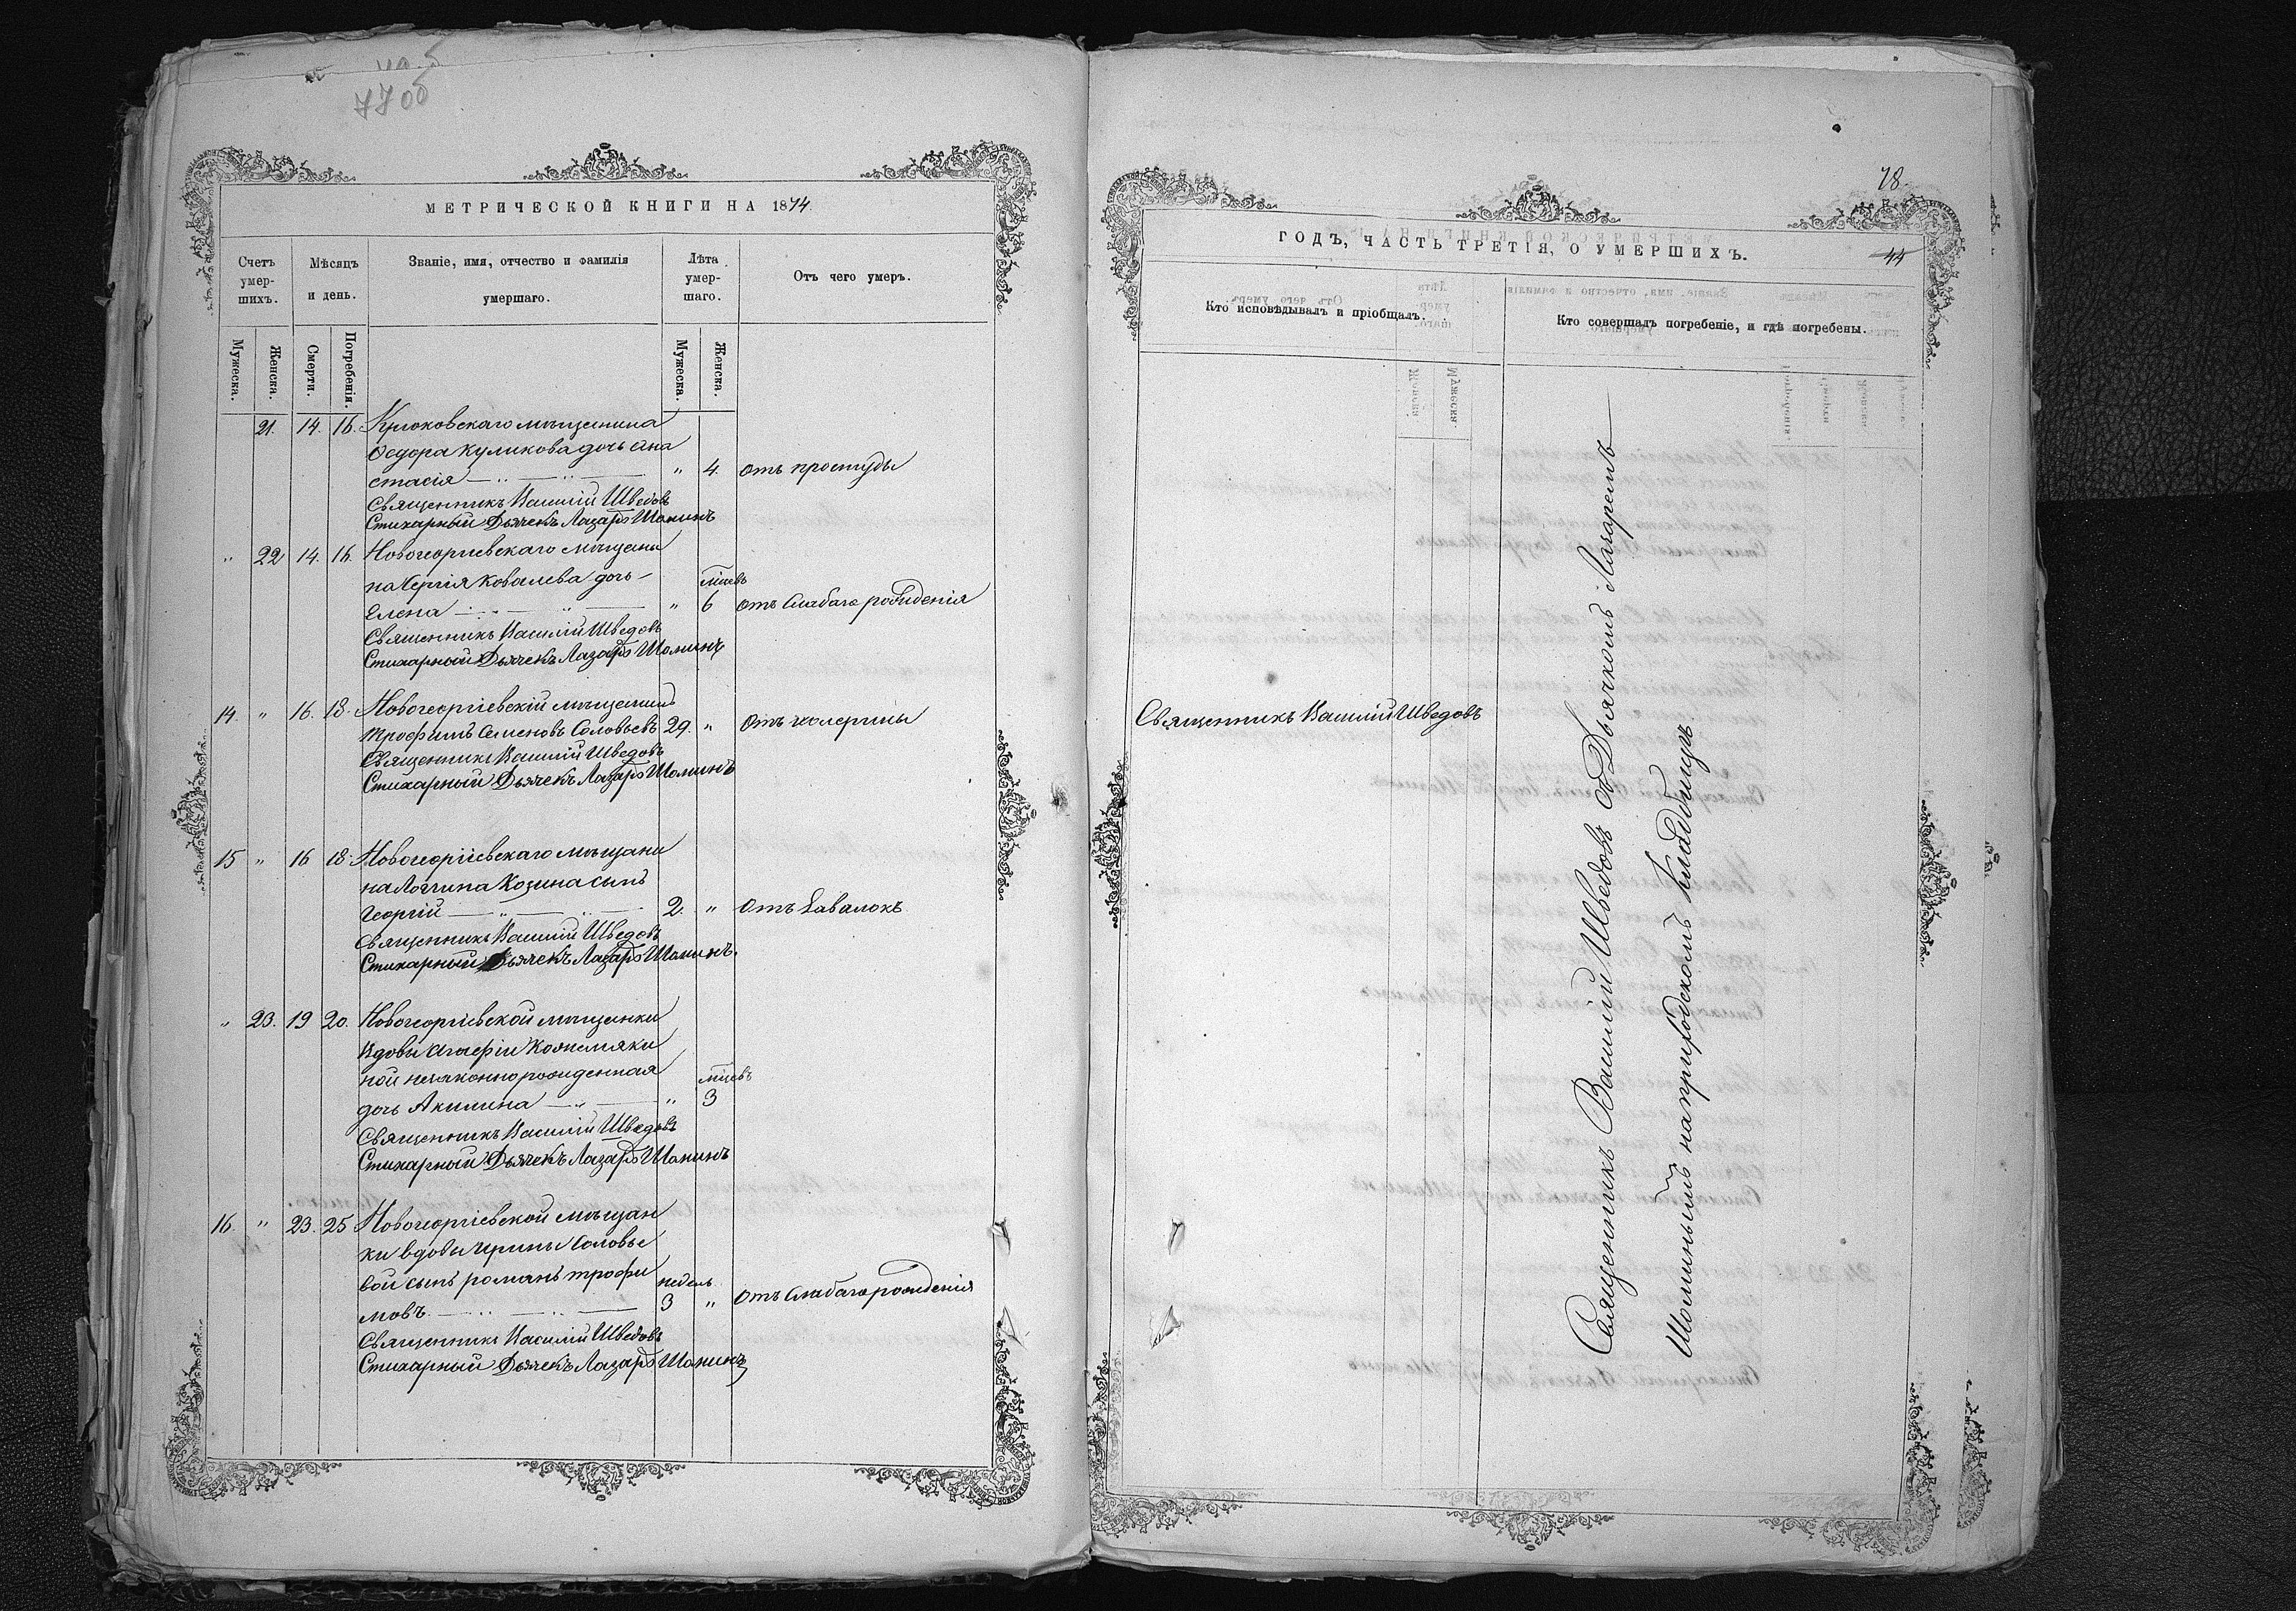 77об
МЕТРИЧЕСКОЙ КНИГИ НА 1874
Счетъ умер-шихъ.
Мѣсяцъ и день.
Званіе, имя, отчество и фамилія умершаго.
Лѣта умер-шаго.
Отъ чего умеръ.
Мужеска.
Женска.
Смерти.
Погребенія.
Мужеска.
Женска.
21. 14. 16. Крюковскаго мѣщанина
Ѳедора Куликова дочь Ана
стасія " 4. отъ простуды
Священникъ Василій Шведовъ
Стихарный Дьячекъ Лазарь Шонинъ
" 22 14. 16. Новогеоргіевскаго мѣщани
на Сергія Ковалева дочь
мцевъ
Елена " 6 отъ слабаго рожденія
Священникъ Василій Шведовъ
Стихарный Дьячекъ Лазарь Шонинъ
14. " 16. 18. Новогеоргіевскій мѣщанинъ
Трофимъ Семеновъ Соловьевъ 29. " Отъ холерины
Священникъ Василій Шведовъ
Стихарный Дьячекъ Лазарь Шонинъ
15 " 16 18. Новогеоргіевскаго мѣщани
на Логгина Козина сынъ
Георгій 2. " Отъ Завалокъ
Священникъ Василій Шведовъ
Стихарный Дьячекъ Лазарь Шонинъ.
" 23. 19 20. Новогеоргіевской мѣщанки
вдовы Кожемяки
ной незаконнорожденная
мцевъ
дочь Акилина " 3
Священникъ Василій Шведовъ
Стихарный Дьячекъ Лазарь Шонинъ
16. " 23. 25 Новогеоргіевской мѣщан
ки вдовы Ирины Соловье
вой сынъ Романъ Трофи
недель
мовъ. 3 " Отъ слабаго рожденія
Священникъ Василій Шведовъ
Стихарный Дьячекъ Лазарь Шонинъ
78.
ГОДЪ, ЧАСТЬ ТРЕТІЯ, О УМЕРШИХЪ.
44
Кто исповѣдывалъ и пріобщалъ.
Кто совершалъ погребеніе, и гдѣ погребены.
Священникъ Василій Шведовъ
Священникъ Василій Шведовъ съ Дьячкомъ Лазаремъ
Шониным на приходскомъ кладбищѣ